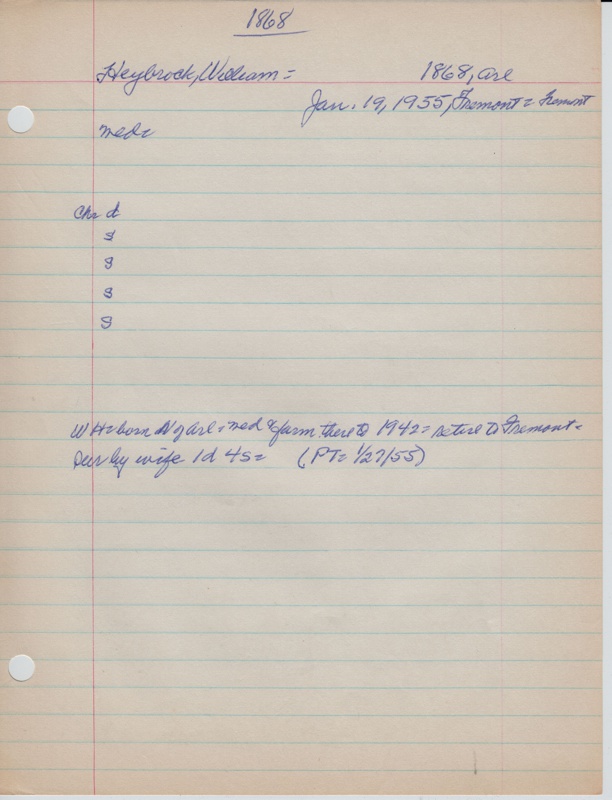 1868
Heybrock, William = 1868, Arl
Jan. 19, 1955, Fremont = Fremont
med=
Ch= d
s
s
s
s
WH= born N of Arl = med & farm there to 1942 = retire to Fremont =
Sur by wife 1d 4s = (PT= 1/27/55)